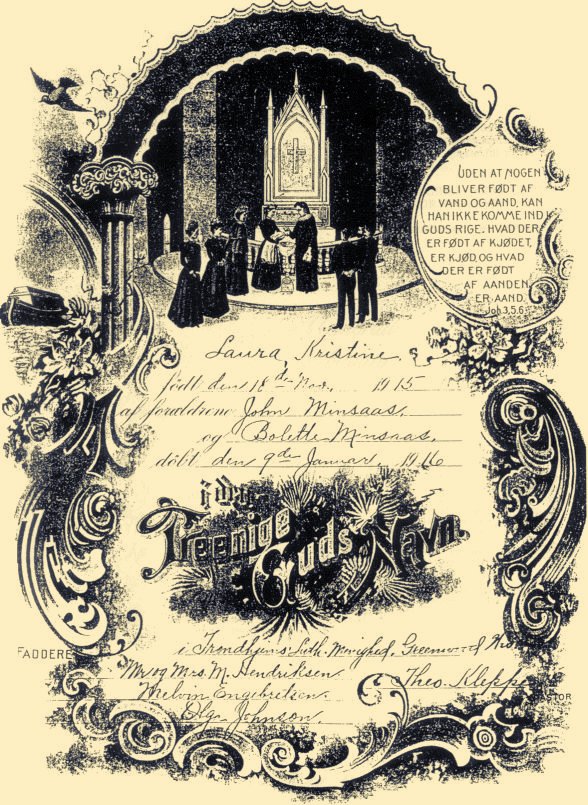 UDEN AT NOGEN
BLIVER FØDT AF
VAND OG AAND, KAN
HAN IKKE KOMME IND I
GUDS RIGE. HVAD DER
ER FØDT AF KJØDET,
ER KJØD, OG HVAD
DER ER FØDT
AF AANDEN,
ER AAND.
Joh. 3,5.6.
Laura Kristine
født den 18de Nov. 1915
af forældrene John Minsaas,
og Bolette Minsaas,
døbt den 9de Januar, 1916
i den
Treenige
Guds Navn.
i Trondhjems Luth. Menighed,
FADDERE
Mr og Mrs. M. Hendriksen.
Theo. Kleppe
PASTOR
Melvin Engebretsen.
Olga Johnson.